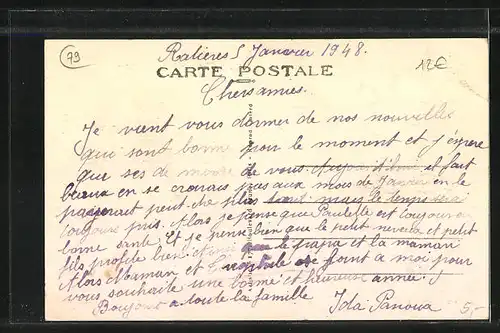 79
Ratières 5 Janvier 1948.
12€
CARTE POSTALE
Chers amies.
Je vient vous donner de nos nouvelles
qui sont bonne pour le moment et j'éspere
que ses de même de vous. Aujourd'hui il fait
beaux en se croirais pas aux mois de Janvier en le
peut être plus mais le temps sera
toujours pris. Alors je pense que Paulette est toujours en
bonne santé et je pense bien que le petit neveu et petit
fils profite bien et que le papa et la maman
Alors Maman et se joint a moi pour
vous souhaite une bonne et heureuse année.
Bonjour a toute la famille Ida
5,-